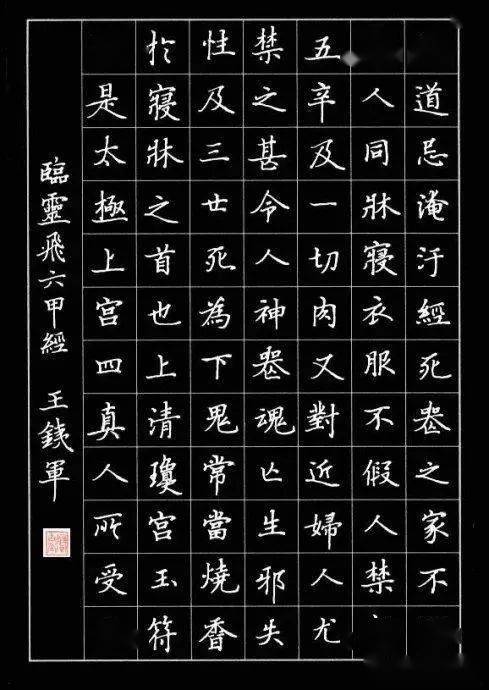 道忌淹汙經死喪之家不
人同牀寢衣服不假人禁
五辛及一切肉又對近婦人尤
禁之甚令人神喪魂亡生邪失
性及三世死為下鬼常當燒香
於寢牀之首也上清瓊宮玉符
是太極上宮四真人所受
臨靈飛六甲經 王銕軍